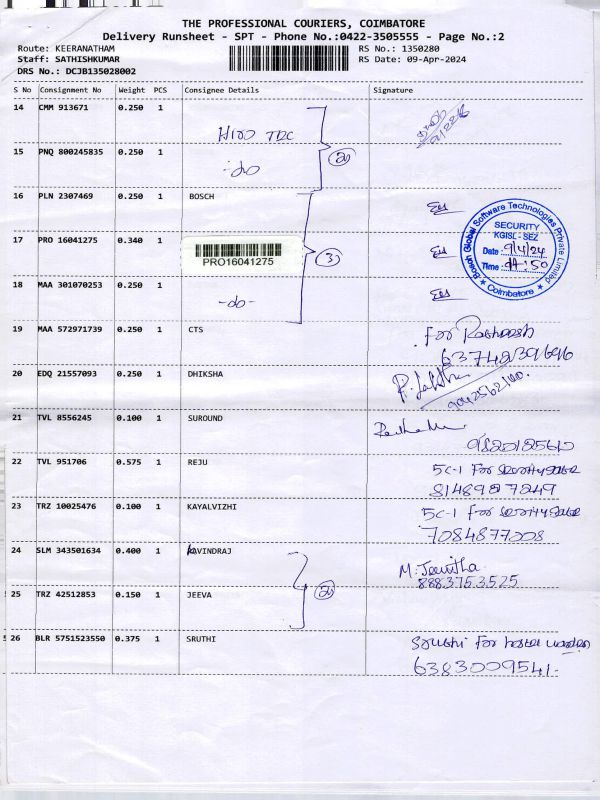 THE PROFESSIONAL COURIERS, COIMBATORE
Delivery Runsheet - SPT - Phone No.:0422-3505555 - Page No.:2
Route: KEERANATHAM RS No.: 1350280
Staff: SATHISHKUMAR RS Date: 09-Apr-2024
DRS No.: DCJB135028002
S No Consignment No Weight PCS Consignee Details Signature
14 CMM 913671 0.250 1
HIRO TDC
15 PNQ 800245835 0.250 1
-do
2
16 PLN 2307469 0.250 1 BOSCH
17 PRO 16041275 0.340 1
PRO16041275
3
18 MAA 301070253 0.250 1
-do-
Bosch Global Software Technologies Private Limited
SECURITY
KGISL - SEZ
Date : 9/4/24
Time :
Coimbatore
19 MAA 572971739 0.250 1 CTS
For
20 EDQ 21557093 0.250 1 DHIKSHA
21 TVL 8556245 0.100 1 SUROUND
22 TVL 951706 0.575 1 REJU
5C-1 For
8148927249
23 TRZ 10025476 0.100 1 KAYALVIZHI
5C-1 For
7084877008
24 SLM 343501634 0.400 1 KAVINDRAJ
M.
8883753525
25 TRZ 42512853 0.150 1 JEEVA
2
26 BLR 5751523550 0.375 1 SRUTHI
Sruthi For hostel warden
6383009541